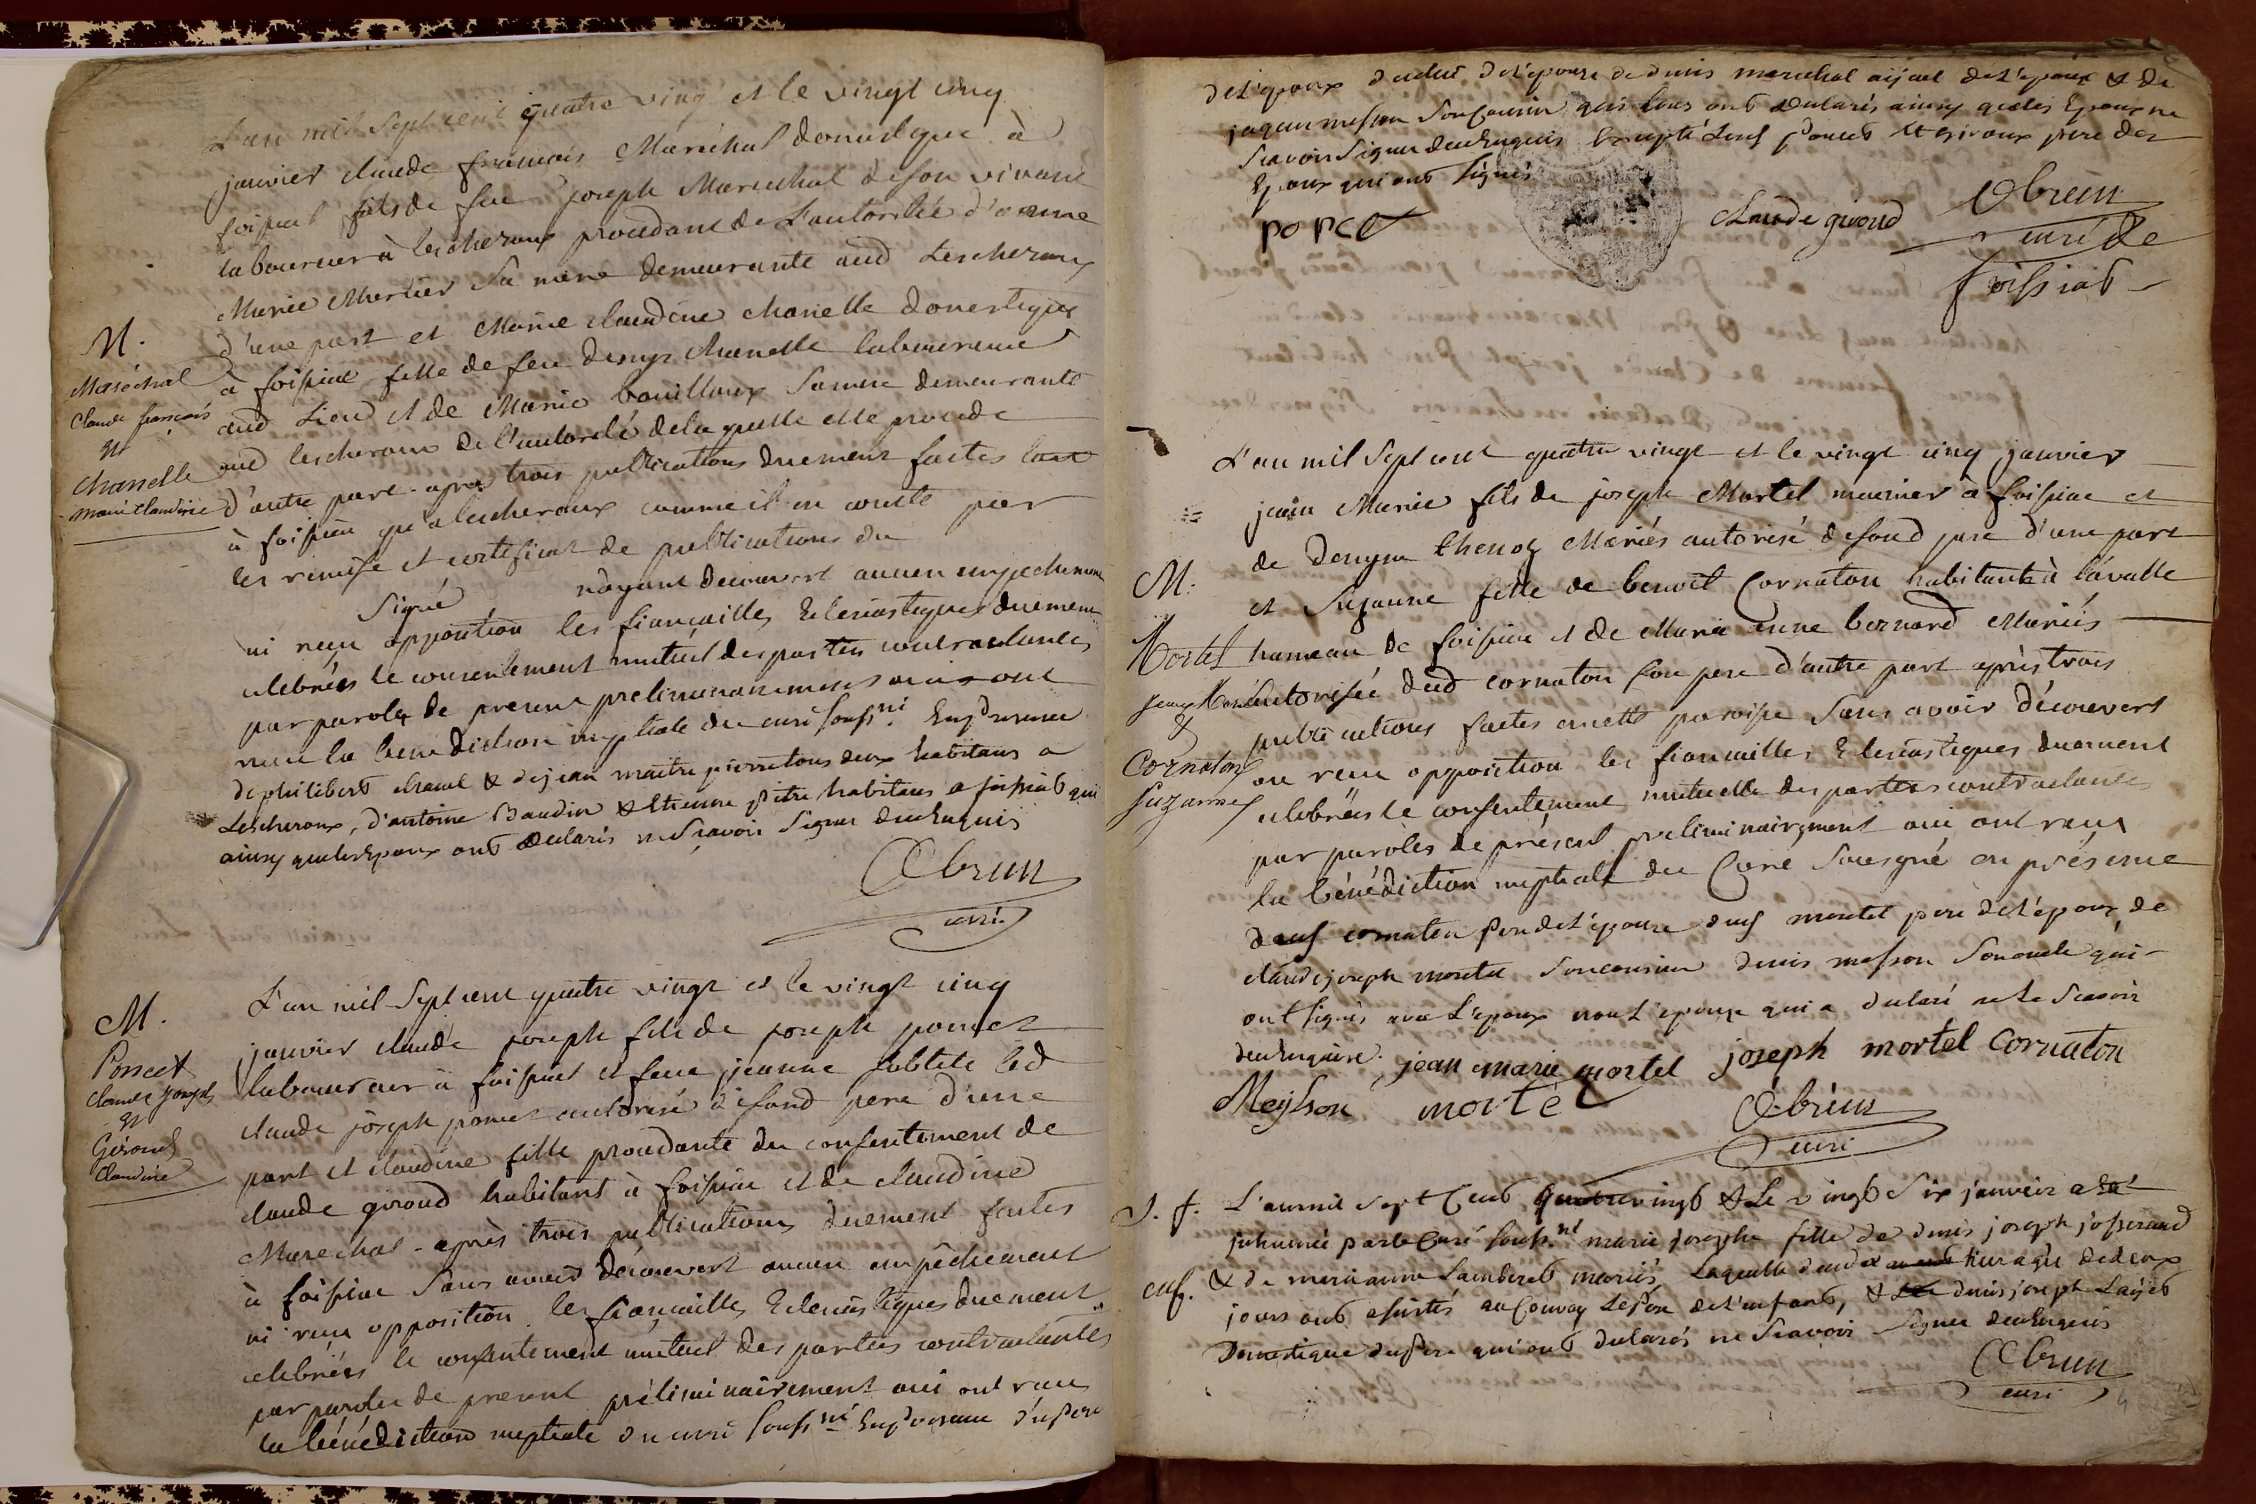 L'an mil Sept cent quatre ving et le vingt cinq
janvier claude francois Maréchal domestique à
foissiat fils de feu joseph Marechal de son vivant
laboureur à lescheroux procedant de L'autoritée d'anne
Marie Mertier sa mere demeurante aud Lescheroux
d'une part et Marie claudine chanelle domestique
à foissiat fille de feu denys chanelle laboureur
aud Lieu et de Marie bouilloux sa mere demeurante
aud lescheroux de l'autorité de la quelle elle procede
d'autre part. apres trois publications duement faites tant
à foissiat qu'a lescheroux comme il en conste par
les remise et certificat de publications du
Signé n'ayant decouvert aucun empechement
ni reçu opposition les fiancailles Eclesiastiques duement
celebrées le consentement mutuel des parties contractantes
par paroles de present preliminairement oui ont
recu la benediction nuptiale du curé soussné. En presence
de philibert chanel & de jean maitre pierre tous deux habitans a
Lescheroux, d'antoine Baudin & Etienne pitre habitans a foissiat qui
ainsy que les Epoux ont declarés ne sçavoir signer de ce Enquis
Cebrun
curé
M.
Maréchal
Claude francois
et
chanelle
marie claudine
L'an mil Sept cent quatre vingt et le vingt cinq
janvier claude joseph fils de joseph poncet
laboureur à foissiat et feue jeanne sublete led
claude joseph poncet autorisé de soud pere d'une
part et claudine fille procedante du consentement de
claude giroud habitant à foissiat et de claudine
Marechal - après trois publications duement faites
à foissiat sans avoir découvert aucun empêchement
ni reçu opposition les fiancailles Eclesiastiques duement
celebrées le consentement mutuel des parties contractantes
par paroles de present préliminairement oui ont recu
la bénédiction nuptiale du curé soussné En presence du pere
M.
Poncet
Claude joseph
et
Giroud
Claudine
de L'epoux de celui de L'epouse de denis marechal aijeul de L'epoux & de
jaques messon son cousin qui tous ont declarés ainsy que les Epoux ne
sçavoir signer de ce Enquis Excepté Lesd poncet et giroux pere des
Epoux qui ont signés
poncet
claude giroud
Cebrun
curé de
foissiat
L'an mil Sept cent quatre vingt et le vingt cinq janvier
jean Marie fils de joseph Mortel meunier à foissiat et
de denyse thenoz Mariés autorisé de soud pere d'une part
et Suzanne fille de benoît Cornaton habitante à lavalle
hameau de foissiat et de Marie anne bernard Mariés
autorisée dud cornaton son pere d'autre part après trois
publications faites en cette paroisse sans avoir découvert
ou recu opposition les fiancailles Eclesiastiques duement
celebrées le consentement mutuelle des parties contractantes
par parôles de présent preliminairement oui ont recu
la bénédiction nuptiale du Curé sousigné en présence
dud cornaton pere de L'epouse dud mortel pere de L'epoux de
claude joseph mortel son cousin denis messon son oncle qui
ont signés avec L'epoux non L'epouse qui a declaré ne le sçavoir
de ce Enquise.
jean marie mortel joseph mortel Cornaton
Meysson mortel
Cebrun
curé
M.
Mortel
jean Marie
et
Cornaton
Suzanne
L'an mil Sept Cent quatre vingt & Le vingt Six janvier a été
inhumée par le Curé soussné marie josephe fille de denis joseph josserand
& de marianne Lamberet mariés, Laquelle decedée hier agée de deux
jours ont assistés au Convoy Le pere de L'enfant, & denis joseph Layet
Domestique du pere qui ont declarés ne sçavoir signer de ce Enquis
Cebrun
curé
S. f.
enf.